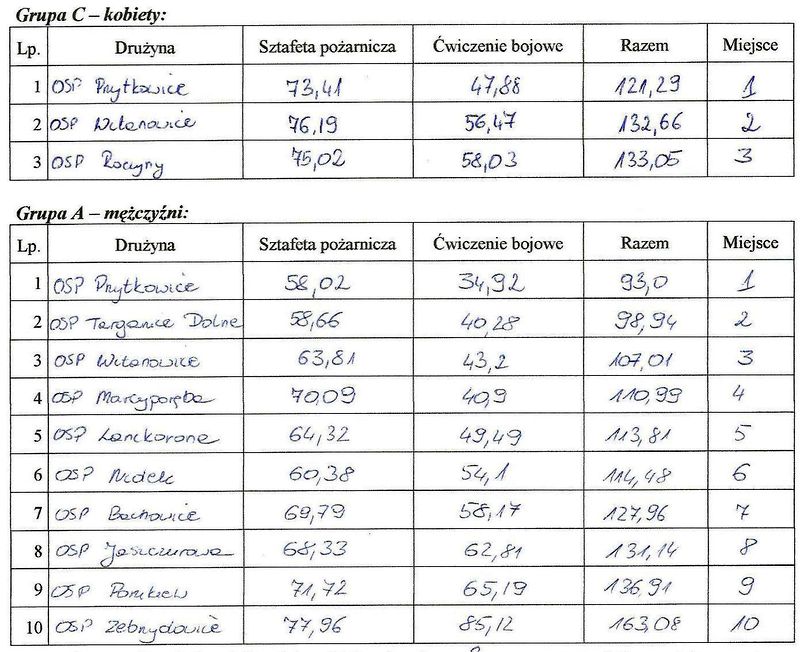 Grupa C – kobiety:
Lp. Drużyna Sztafeta pożarnicza Ćwiczenie bojowe Razem Miejsce
1 OSP Przytkowice 73,41 47,88 121,29 1
2 OSP Witanowice 76,19 56,47 132,66 2
3 OSP Roczyny 75,02 58,03 133,05 3
Grupa A – mężczyźni:
Lp. Drużyna Sztafeta pożarnicza Ćwiczenie bojowe Razem Miejsce
1 OSP Przytkowice 58,02 34,92 93,0 1
2 OSP Targanice Dolne 58,66 40,28 98,94 2
3 OSP Witanowice 63,81 43,2 107,01 3
4 OSP Marcyporęba 70,09 40,9 110,99 4
5 OSP Lanckorona 64,32 49,49 113,81 5
6 OSP Nidek 60,38 54,1 114,48 6
7 OSP Bachowice 69,79 58,17 127,96 7
8 OSP Jaszczurowa 68,33 62,81 131,14 8
9 OSP Ponikiew 71,72 65,19 136,91 9
10 OSP Zebrzydowice 77,96 85,12 163,08 10